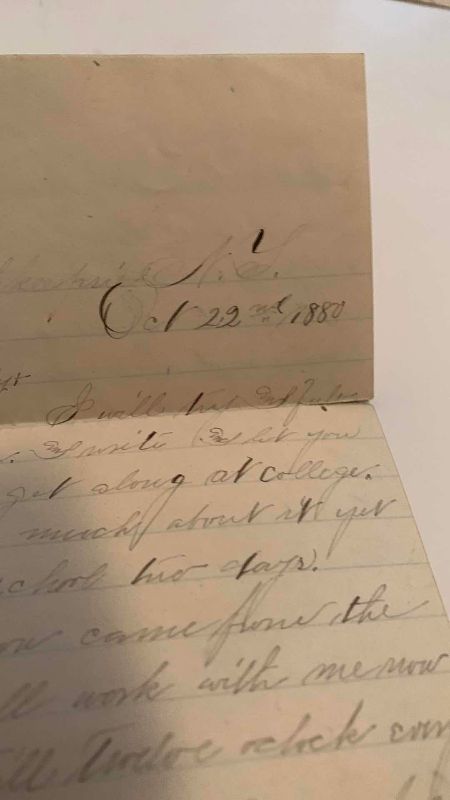 N.Y.
Oct 22nd/1880
I will try &
& write & let you
get along at college.
much about it yet
school two days.
came from the
work with me now
Twelve oclock